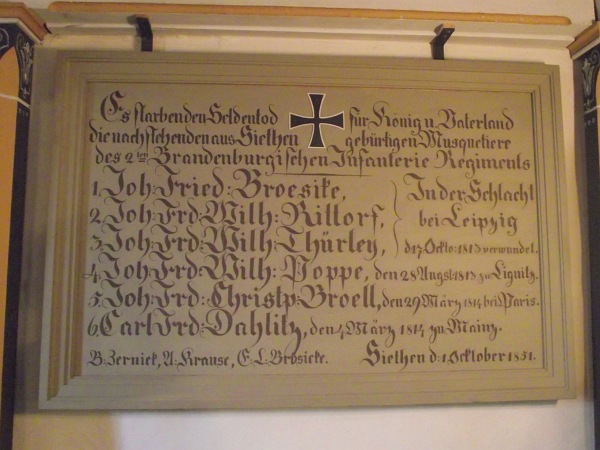 Es starben den Heldentod für König u. Vaterland
die nachstehenden aus Siethen gebürtigen Musquetiere
des 2ten Brandenburgischen Infanterie Regiments
1, Joh: Fried: Broesike,
2, Joh: Frd: Wilh: Rittorf,
3, Joh: Frd: Wilh: Thürley,
In der Schlacht
bei Leipzig
d. 17. Octo: 1813 verwundet.
4, Joh: Frd: Wilh: Poppe, den 28 Augst: 1813 zu Lignitz.
5, Joh: Frd: Christp: Broell, den 29 März 1814 bei Paris.
6, Carl Frd: Dahlitz, den 4 März 1814 zu Mainz.
B. Zernick, A. Krause, E. L. Brösicke. Siethen d: 1. Ocktober 1851.